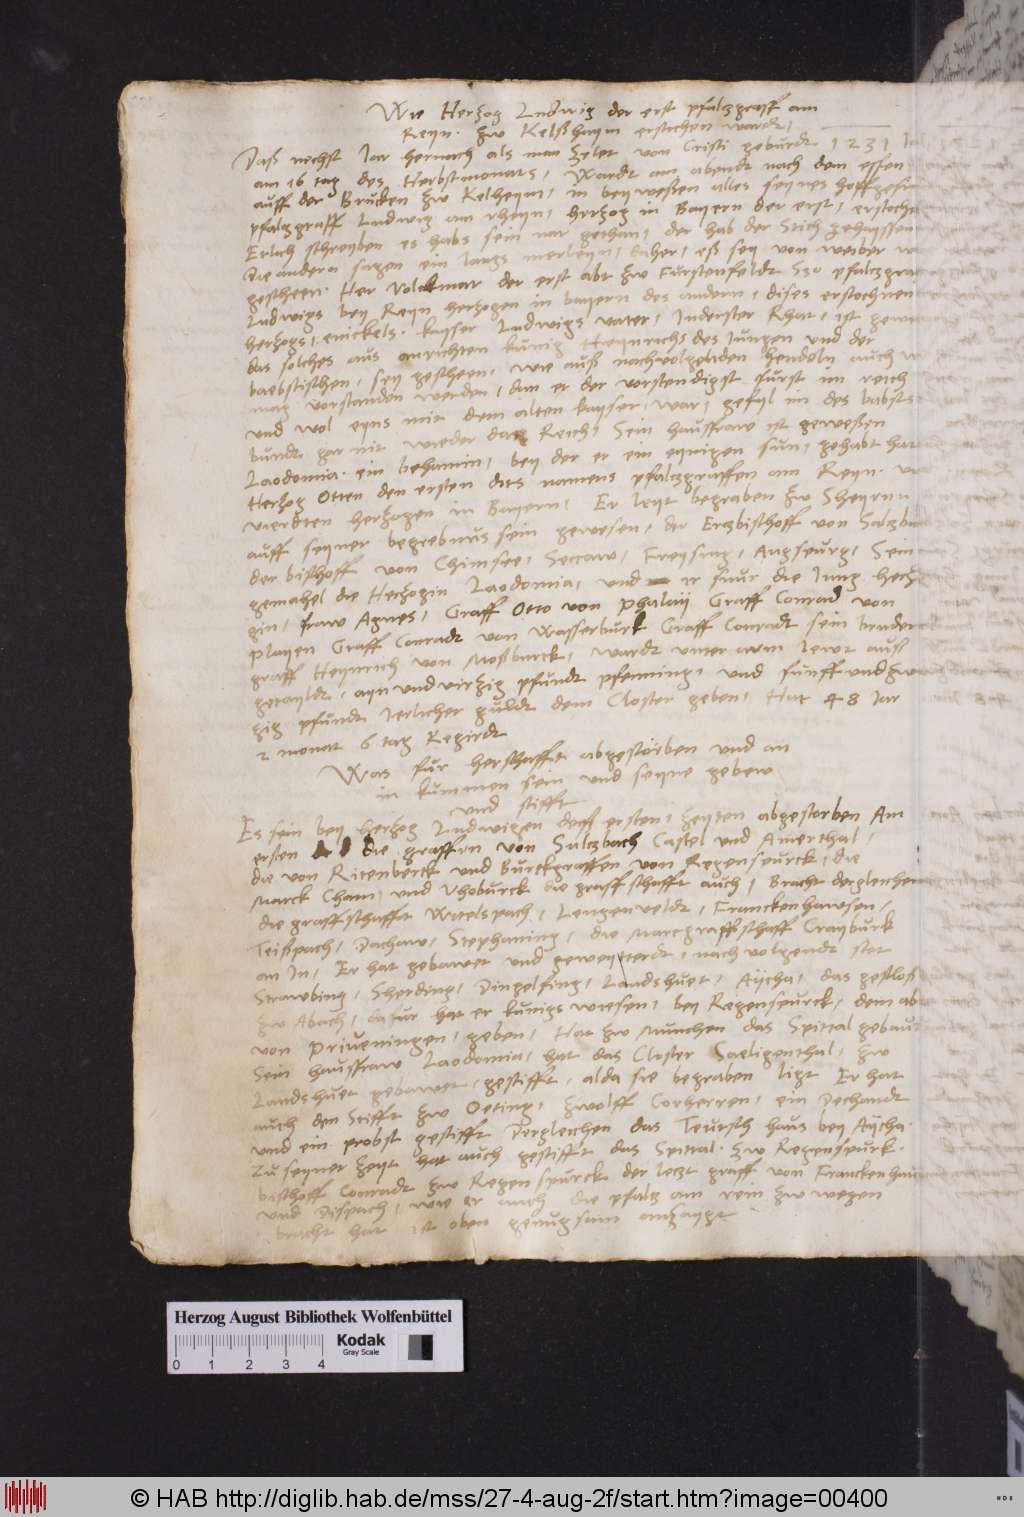 Wie Herzog Ludwig der erst pfaltzgraff am
Reyn. zw Kelßhaym erstichen wardt,
Daß nechst Jar hernach als man zelet von Cristi geburdt 1231
am 16 tag des Herbstmonats, Wardt am abendt nach dem essen
auff der Brucken zw Kelheym, in beyweßen alles seynes
pfaltzgraff Ludwig am rheyn, hertzog in Bayern der erst,
Etlich schreyben es habs sein nar gethan, der hab der Stich
Die andern sagen ein von weiber
gescheen. Her Volckmar der erst abt zw Furstenfeldt
Ludwigs bey Reyn herzogen in bayern des andern, dises erstochnen
herzogs, enickels. kayser Ludwigs vater, Rhat, ist
das solches aus anrichten kunig Heynrichs des Jungen und der
baebstischen, sey gescheen, wie auß nachvolgenden hendeln auch
mag vorstanden werden, dan er der vorstendigst furst im reich
und wol eyns mit dem alten kayser, war, gefyl im des babsts
bundt gar nit wieder das Reich, Sein hausfraw ist geweßen
Laodomia. ein behamin, bey der er ein eynigen sun, gehabt hat
Herzog Otten den ersten dits namens pfaltzgraffen am Reyn.
vierdten herzogen in Bayern, Er leyt begraben zw Sheyrnn
auff seyner begrebnus sein gewesen, der Erczbischoff von
der bischoff von Chimsee, Seccaw, Freysing, Augspurg, Sein
gemahel die Herzogin Laodomia, und ir snur die Jung
gin, fraw Agnes, Graff Otto von Phalaij Graff Conrad von
Playen Graff Conradt von Wasserburk Graff Conradt sein bruder
graff Heynrich von Mosburck, wardt unter arm lewt auß
getayldt, ayn und virzig pfundt pfenning, und funff und
zig pfundt Jerlicher guldt dem Closter geben, Hat 48 Jar
2 monat 6 tag Regirdt
Was fur herschafft abgestorben und an
in kummen sein und seyne gebew
und stifft
Es sein bey herzog Ludwigen deß ersten, zeyten abgestorben Am
ersten die graffen von Sulczbach Castel und Amerthal,
die von Ritenberck und Burckgraffen von Regenspurck, die
Marck Cham, und Vhoburck die graffschafft auch, Bracht dergleichen
die graffschafft Witelspach, Lengenveldt, Franckenhawsen,
Teißpach, Dachaw, Stephaning, die Marcgraffschaff Crayburk
an In, Er hat gebawet und geweytterdt, nachvolgendt stet
Strawbing, Sherding, Dingelfing, Landshuet, Aijcha, das geschloß
zw Abach, dafur hat er kunigs wiesen, bey Regenspurck, dem
von Priveningen, geben, Hat zw Munchen das Spittal gebaut
Sein hausfraw Laodomia, hat das Closter Saeligenthal, zw
Landshuet gebawet, gestifft, alda sie begraben ligt Er hat
auch den Stifft zw Oeting, zwolff Corherren, ein Dechandt
und ein probst gestifft Dergleichen das Teutsch haus bey Aijcha.
Zu seyner zeyt hat auch gestifft das Spittal. zw Regenspurk.
bischoff Conradt zw Regenspurck der leczt graff von
und Dispach, wie er auch die pfaltz am rein zw wegen
bracht hat ist oben genugsam anzaygt
Herzog August Bibliothek Wolfenbüttel
Kodak
Gray Scale
0 1 2 3 4
© HAB http://diglib.hab.de/mss/27-4-aug-2f/start.htm?image=00400